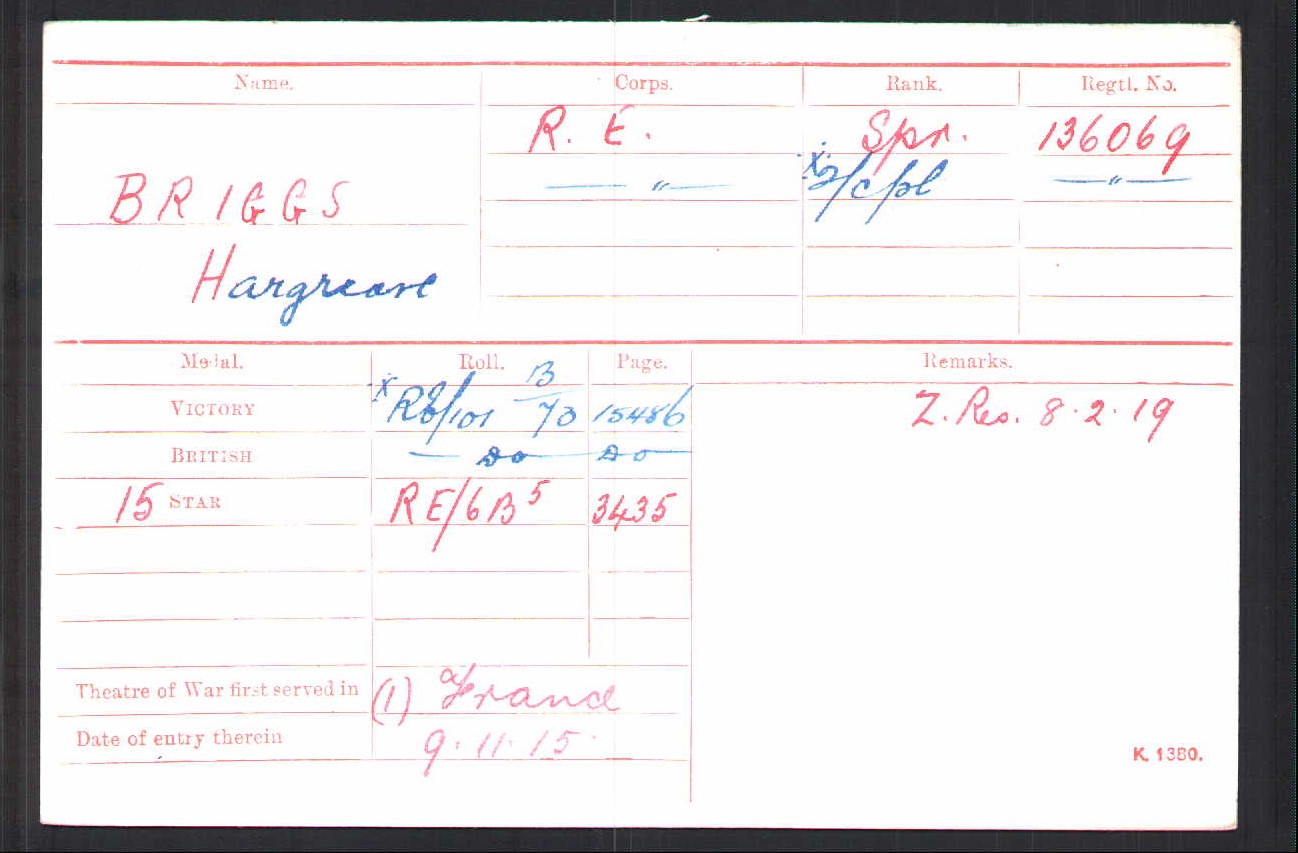 Name. Corps. Rank. Regtl. No.
R. E. Spr. 136069
— " — X 2/Cpl — " —
BRIGGS
Hargreave
Medal. Roll. Page. Remarks.
VICTORY X RE/101 B73 15486 Z. Res. 8.2.19
BRITISH — Do Do
15 STAR RE/6B5 3435
Theatre of War first served in (1) France
Date of entry therein 9.11.15.
K. 1380.